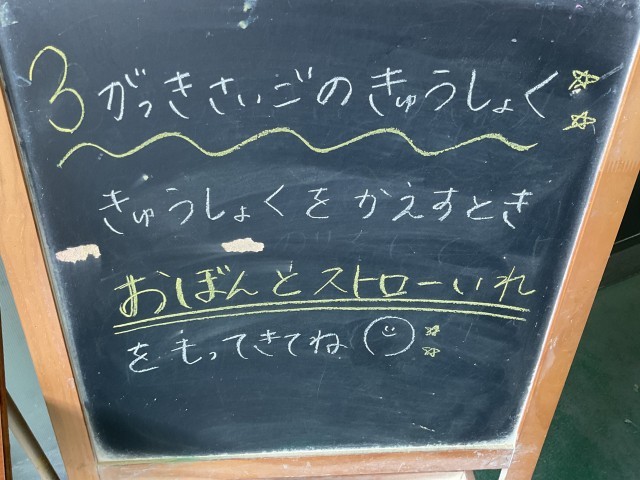 3がっきさいごのきゅうしょく
きゅうしょくをかえすとき
おぼんとストローいれ
をもってきてね